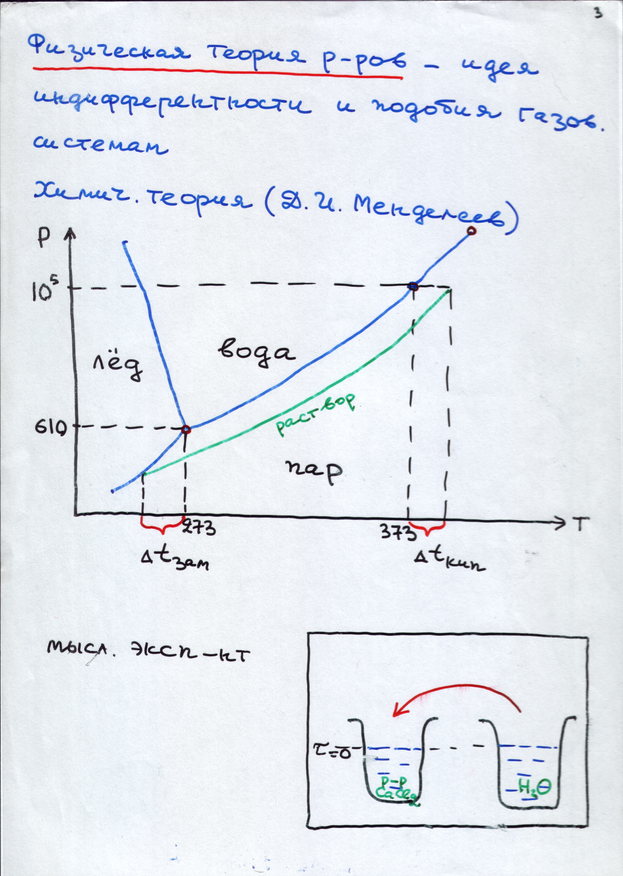 3
Физическая теория р-ров – идея
индифферентности и подобия газов.
системам
Химич. теория (Д.И. Менделеев)
P
10⁵
лёд
вода
610
раствор
пар
273
373
T
Δtзам
Δtкип
мысл. эксп-нт
τ=0
р-р
CaCl₂
H₂O